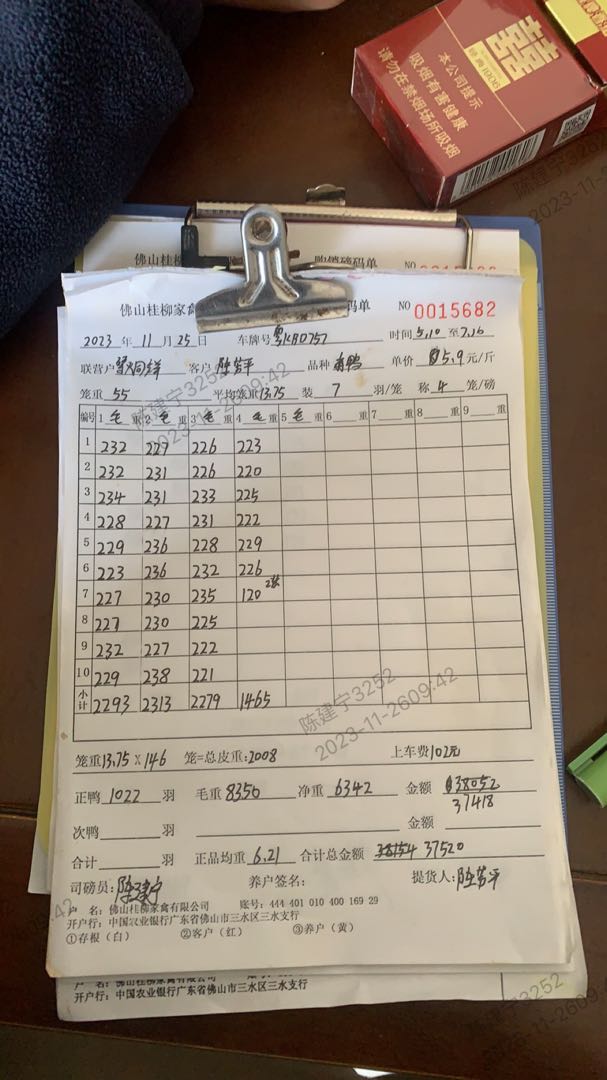 囍
经典1006
本公司提示
吸烟有害健康
请勿在禁烟场所吸烟
陈建宁3252
2023-11-26
佛山桂柳 购销磅码单 NO
佛山桂柳家禽 码单 NO 0015682
2023 年 11 月 25 日 车牌号 时间 5.10 至 7.26
联营户 客户 陈苦平 品种 单价 5.9 元/斤
笼重 55 平均笼重 13.75 装 7 羽/笼 称 4 笼/磅
编号 1 毛 重 2 毛 重 3 毛 重 4 毛 重 5 毛 重 6 重 7 重 8 重 9 重
1 232 227 226 223
2 232 231 226 220
3 234 231 233 225
4 228 227 231 222
5 229 236 228 229
6 223 236 232 226
7 227 230 235 120
8 227 230 225
9 232 227 222
10 229 238 221
小计 2293 2313 2279 1465
笼重 13.75 × 146 笼=总皮重: 2008 上车费 102元
正鸭 1022 羽 毛重 8350 净重 6342 金额 38052
37418
次鸭 羽 金额
合计 羽 正品均重 6.21 合计总金额 38154 37520
司磅员: 陈建宁 养户签名: 提货人:
户 名: 佛山桂柳家禽有限公司 账号: 444 401 010 400 169 29
开户行: 中国农业银行广东省佛山市三水区三水支行
①存根（白） ②客户（红） ③养户（黄）
户 名: 佛山桂柳家禽有限公司
开户行: 中国农业银行广东省佛山市三水区三水支行
陈建宁3252
2023-11-2609:42
陈建宁3252
2023-11-2609:42
陈建宁3252